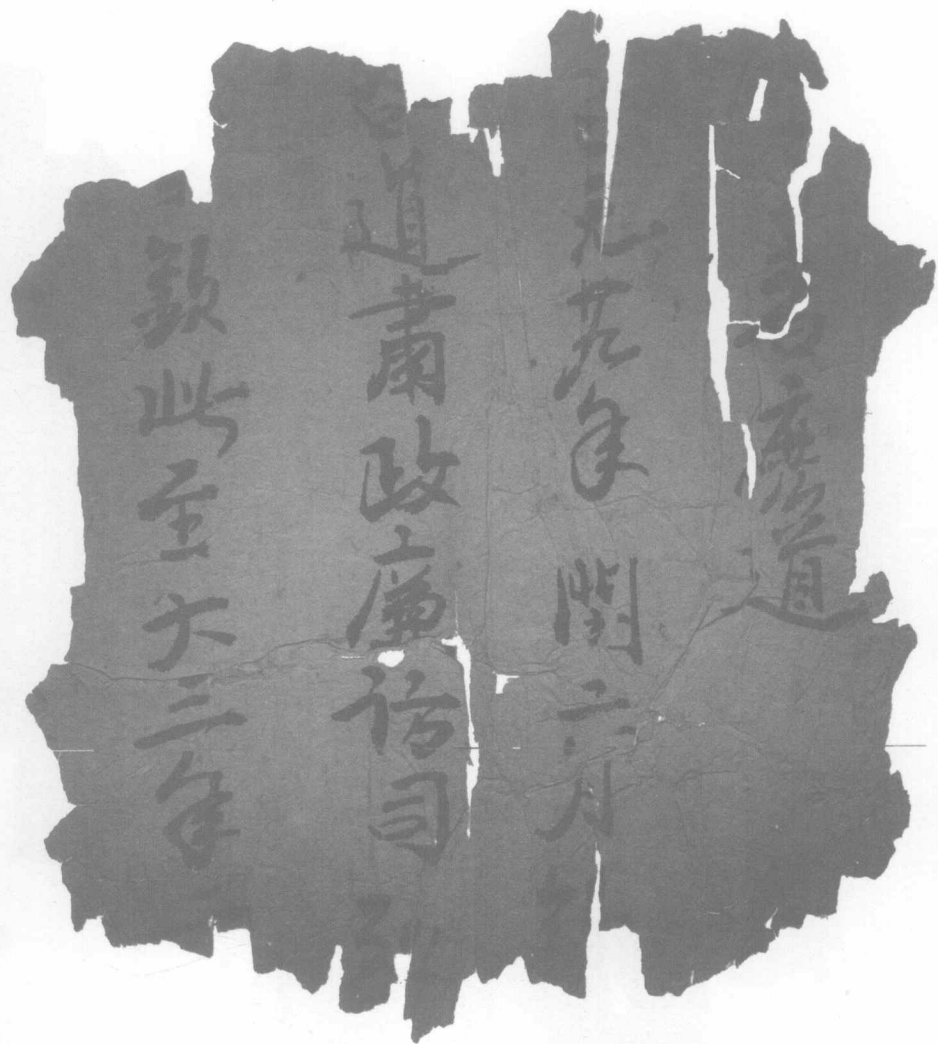 麽道
元廿九年閏六月
道肅政廉訪司
欽此至大三年